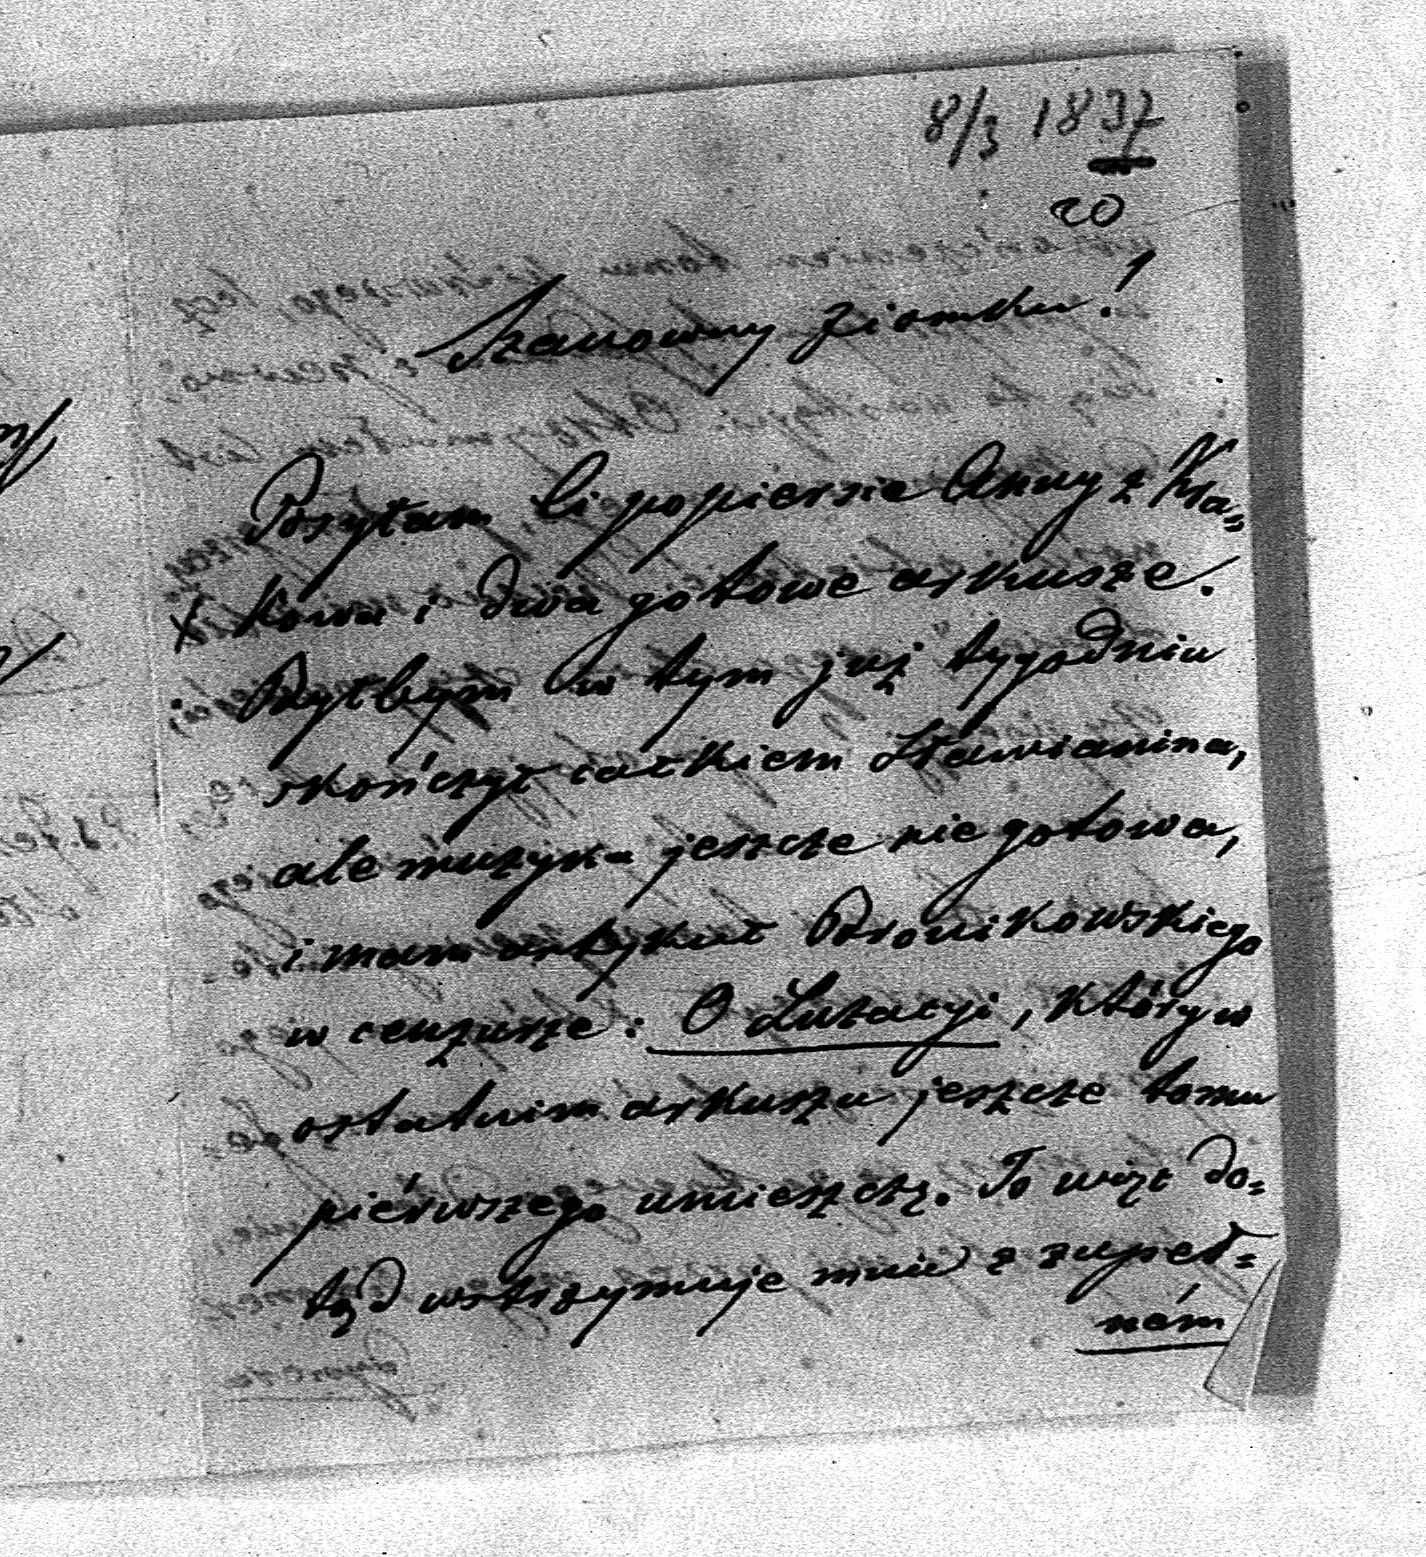 8/3 1837
20
Szanowny Ziomku!
Posyłam Ci popiersie Anny z Kra=
x kowa i dwa gotowe arkusze.
Byłbym w tym już tygodniu
skończył całkiem Sławianina,
ale muzyka jeszcze nie gotowa,
i mam artykuł Bronikowskiego
w cenzurze: O Luzacyi, który w
ostatnim arkuszu jeszcze tomu
piérwszego umieszczę. To więc do=
tąd wstrzymuje mnie z zupeł=
ném